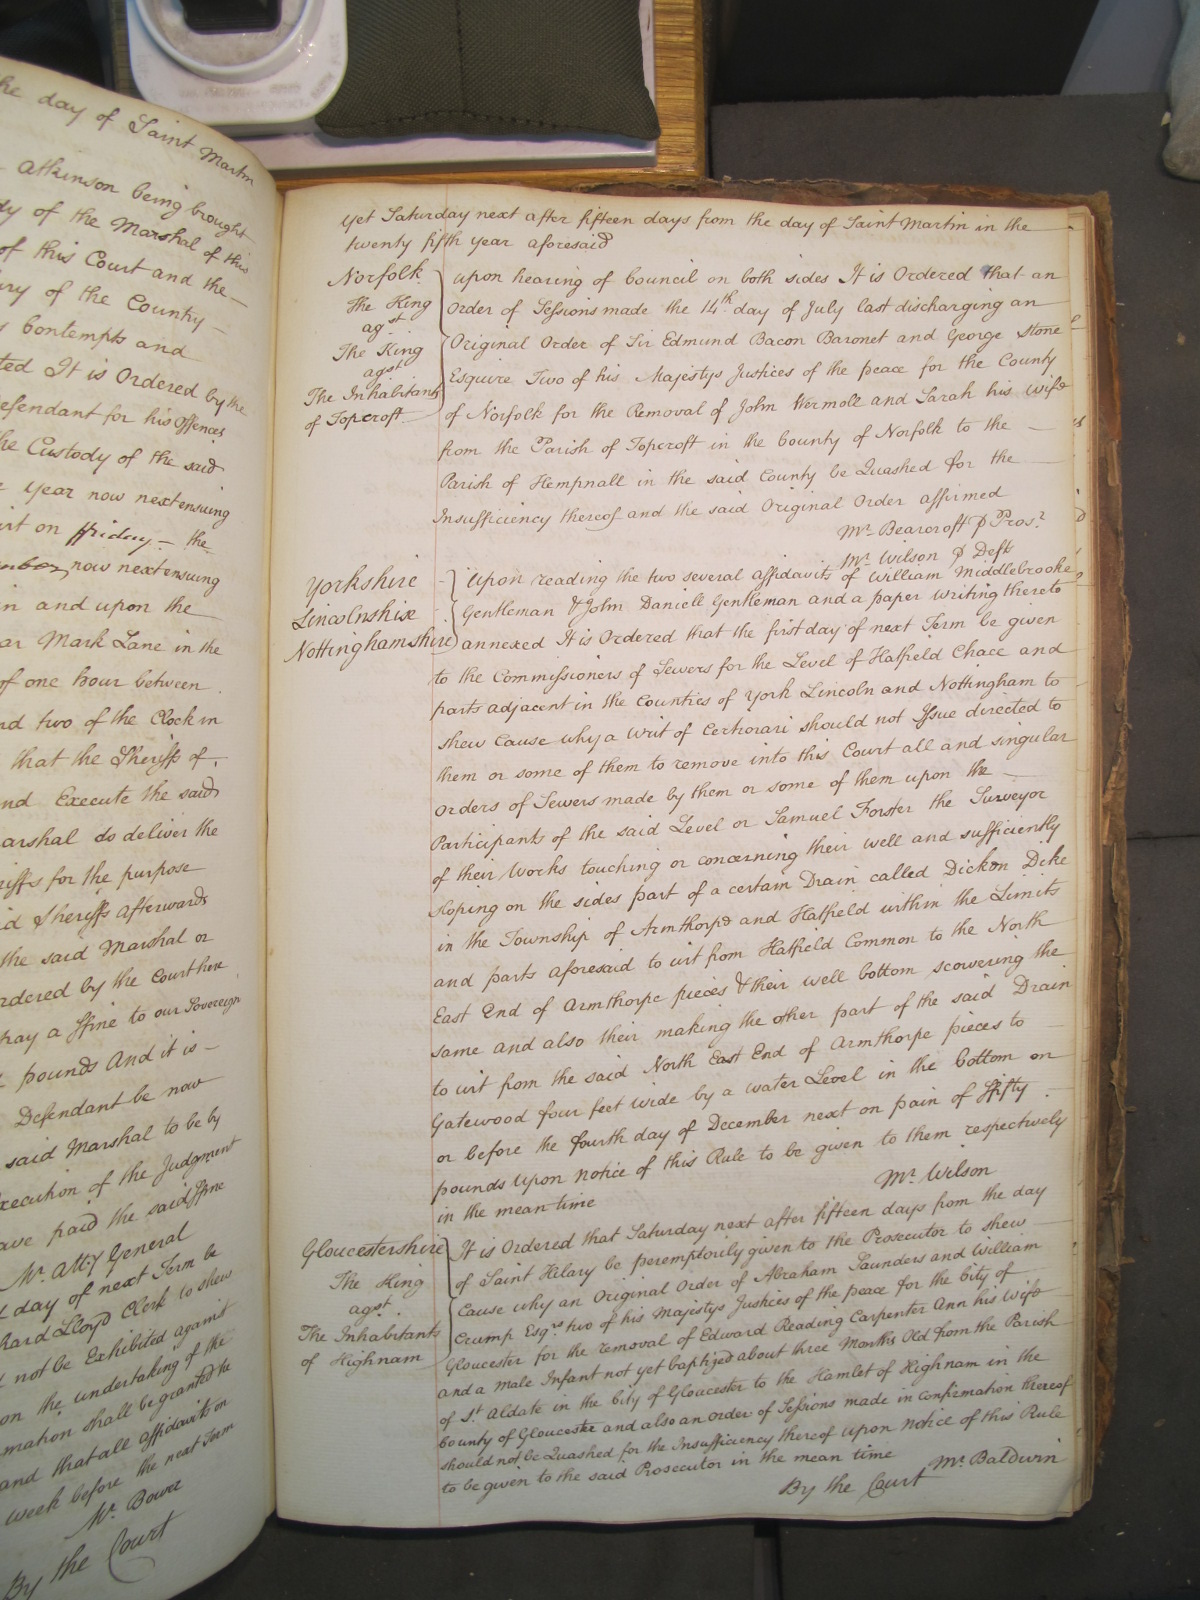 he day of Saint Martin
Atkinson being brought
dy of the Marshal of this
of this Court and the
ury of the County
s Contempts and
ted It is Ordered by the
efendant for his Offences
he Custody of the said
year now next ensuing
irt on ffriday the
mber now next ensuing
in and upon the
ar Mark Lane in the
of one hour between
nd two of the Clock in
that the Sheriffs of
nd Execute the said
arshal do deliver the
riffs for the purpose
id Sheriffs afterwards
the said Marshal or
rdered by the Court here
pay a ffine to our Sovereign
pounds And it is
Defendant be now
said Marshal to be by
xecution of the Judgment
ave paid the said ffine
Mr. Atty General
t day of next Term be
hard Lloyd Clerk to shew
not be Exhibited against
on the undertaking of the
mation shall be granted the
and that all affidavits on
week before the next Term
Mr. Bower
By the Court
Yet Saturday next after fifteen days from the day of Saint Martin in the
twenty fifth year aforesaid
Norfolk
The King
agst.
The King
agst
The Inhabitants
of Topcroft
Upon hearing of Council on both sides It is Ordered that an
Order of Sessions made the 14th day of July last discharging an
Original Order of Sir Edmund Bacon Baronet and George Stone
Esquire Two of his Majestys Justices of the peace for the County
of Norfolk for the Removal of John Wermoll and Sarah his Wife
from the Parish of Topcroft in the County of Norfolk to the
Parish of Hempnall in the said County be Quashed for the
Insufficiency thereof and the said Original Order affirmed
Mr. Bearcroft p Prosr.
Mr. Wilson p Deft
Yorkshire
Lincolnshire
Nottinghamshire
Upon reading the two several affidavits of William Middlebrooke
Gentleman & John Daniell Gentleman and a paper writing thereto
annexed It is Ordered that the first day of next Term be given
to the Commissioners of Sewers for the Level of Hatfield Chace and
parts adjacent in the Counties of York Lincoln and Nottingham to
shew Cause why a Writ of Certiorari should not Issue directed to
them or some of them to remove into this Court all and singular
Orders of Sewers made by them or some of them upon the
Participants of the said Level or Samuel Forster the Surveyor
of their Works touching or concerning their well and sufficiently
sloping on the sides part of a certain Drain called Dickon Dike
in the Township of Armthorpe and Hatfield within the Limits
and parts aforesaid to wit from Hatfield Common to the North
East End of Armthorpe pieces & their well bottom scowering the
same and also their making the other part of the said Drain
to wit from the said North East End of Armthorpe pieces to
Gatewood four feet wide by a water Level in the bottom on
or before the fourth day of December next on pain of ffifty
pounds Upon notice of this Rule to be given to them respectively
in the mean time
Mr. Wilson
Gloucestershire
The King
agst.
The Inhabitants
of Highnam
It is Ordered that Saturday next after fifteen days from the day
of Saint Hilary be peremptorily given to the Prosecutor to shew
Cause why an Original Order of Abraham Saunders and William
Crump Esqrs. two of his Majestys Justices of the peace for the City of
Gloucester for the removal of Edward Reading Carpenter Ann his Wife
and a Male Infant not yet baptized about three Months Old from the Parish
of St. Aldate in the City of Gloucester to the Hamlet of Highnam in the
County of Gloucester and also an Order of Sessions made in Confirmation thereof
should not be Quashed for the Insufficiency thereof Upon Notice of this Rule
to be given to the said Prosecutor in the mean time
Mr. Baldwin
By the Court